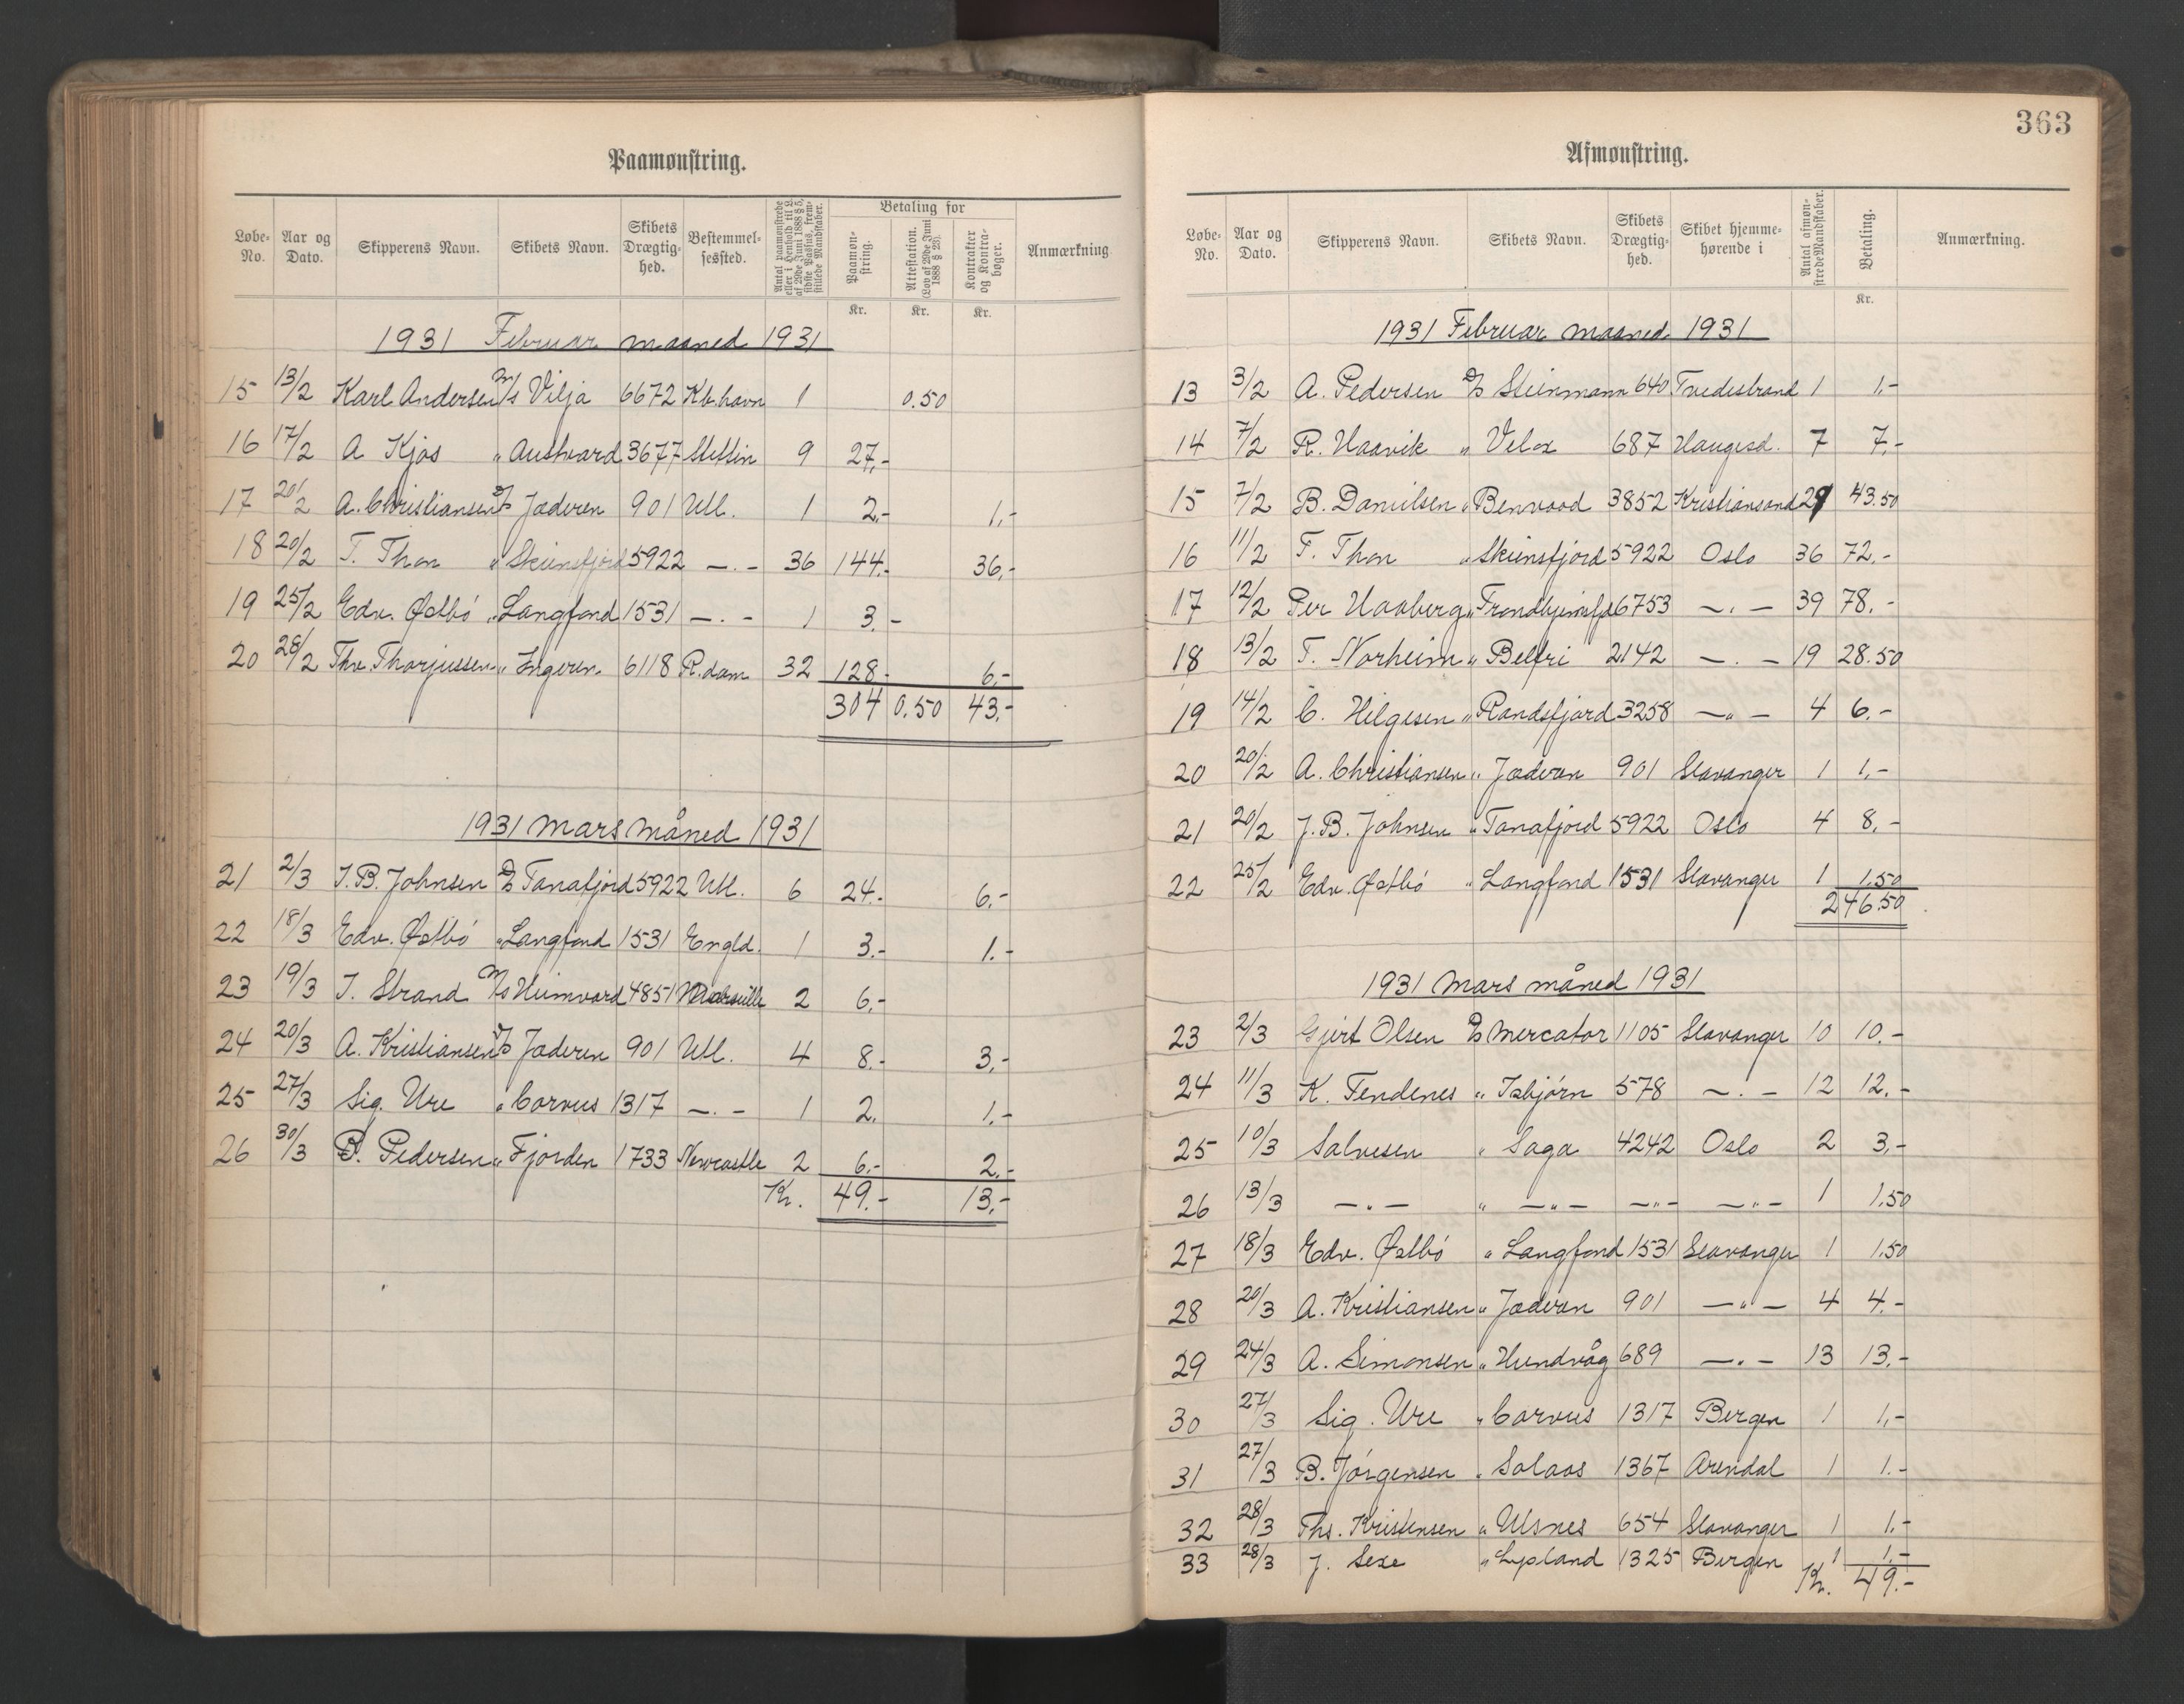 Paamønstring.
Løbe-No. Aar og Dato. Skipperens Navn. Skibets Navn. Skibets Drægtighed. Bestemmelsessted. Antal paamønstrede eller i Henhold til L. af 29de Juni 1888 § 5, sidste Passus, fremstillede Mandskaber. Betaling for Paamønstring. Attestation. (Lov af 29de Juni 1888 § 23). Kontrakter og Kontrabøger. Anmærkning
Kr. Kr. Kr.
1931 Februar maaned 1931
15 13/2 Karl Andersen M/S Vilja 6672 Kb.havn 1 0.50
16 17/2 A Kjos " Austvard 3677 Stettin 9 27,-
17 20/2 A. Christiansen D/S Jæderen 901 Utl. 1 2.- 1,-
18 20/2 T. Thon " Skiensfjord 5922 —.- 36 144.- 36,-
19 25/2 Edv. Østbö " Langfond 1531 —.- 1 3.-
20 28/2 Thv. Thorjussen " Ingeren 6118 R.dam 32 128.- 6,-
304 0.50 43.-
1931 Mars måned 1931
21 2/3 J.B. Johnsen D/S Tanafjord 5922 Utl. 6 24.- 6.-
22 18/3 Edv. Østbö " Langfond 1531 Engld. 1 3.- 1.-
23 19/3 J. Strand M/S Heimvard 4851 Marseille 2 6,-
24 20/3 A. Kristiansen D/S Jæderen 901 Utl. 4 8.- 3,-
25 27/3 Sig. Ure " Corvus 1317 —.- 1 2. 1.-
26 30/3 B. Pedersen " Fjorden 1733 Newcastle 2 6.- 2.-
Kr. 49.- 13,-
363
Afmønstring.
Løbe-No. Aar og Dato. Skipperens Navn. Skibets Navn. Skibets Drægtighed. Skibet hjemmehørende i Antal afmønstrede Mandskaber. Betaling. Anmærkning.
Kr.
1931 Februar maaned 1931
13 3/2 A. Pedersen D/S Steinmann 640 Tvedestrand 1 1.-
14 7/2 R. Haavik " Velox 687 Haugesd. 7 7.-
15 7/2 B. Danielsen " Benwood 3852 Kristiansand 29 43.50
16 11/2 T. Thon " Skiensfjord 5922 Oslo 36 72.-
17 12/2 Per Haaberg " Trondhjemsfjd 6753 —.— 39 78.-
18 13/2 T. Norheim " Belfri 2142 —.— 19 28.50
19 14/2 C. Hilgesen " Randsfjord 3258 —"— 4 6.-
20 20/2 A. Christiansen " Jæderen 901 Stavanger 1 1,-
21 20/2 J.B. Johnsen " Tanafjord 5922 Oslo 4 8.-
22 25/2 Edv. Østbö " Langfond 1531 Stavanger 1 1.50
246.50
1931 Mars måned 1931
23 2/3 Gjert Olsen D/S Mercator 1105 Stavanger 10 10.-
24 11/3 K. Tendenes " Isbjörn 578 —.— 12 12.-
25 10/3 Salvesen " Saga 4242 Oslo 2 3.-
26 13/3 —"— " —"— —"- —"- 1 1.50
27 18/3 Edv. Østbö " Langfond 1531 Stavanger 1 1.50
28 20/3 A. Kristiansen " Jæderen 901 —"— 4 4.-
29 24/3 A. Simonsen " Hundvåg 689 —.— 13 13.-
30 27/3 Sig. Ure " Corvus 1317 Bergen 1 1,-
31 27/3 B. Jörgensen " Solaas 1367 Arendal 1 1.-
32 28/3 Ths. Kristensen " Ulsnes 654 Stavanger 1 1.-
33 28/3 J. Sexe " Lysland 1325 Bergen 1 1.-
Kr. 49.-